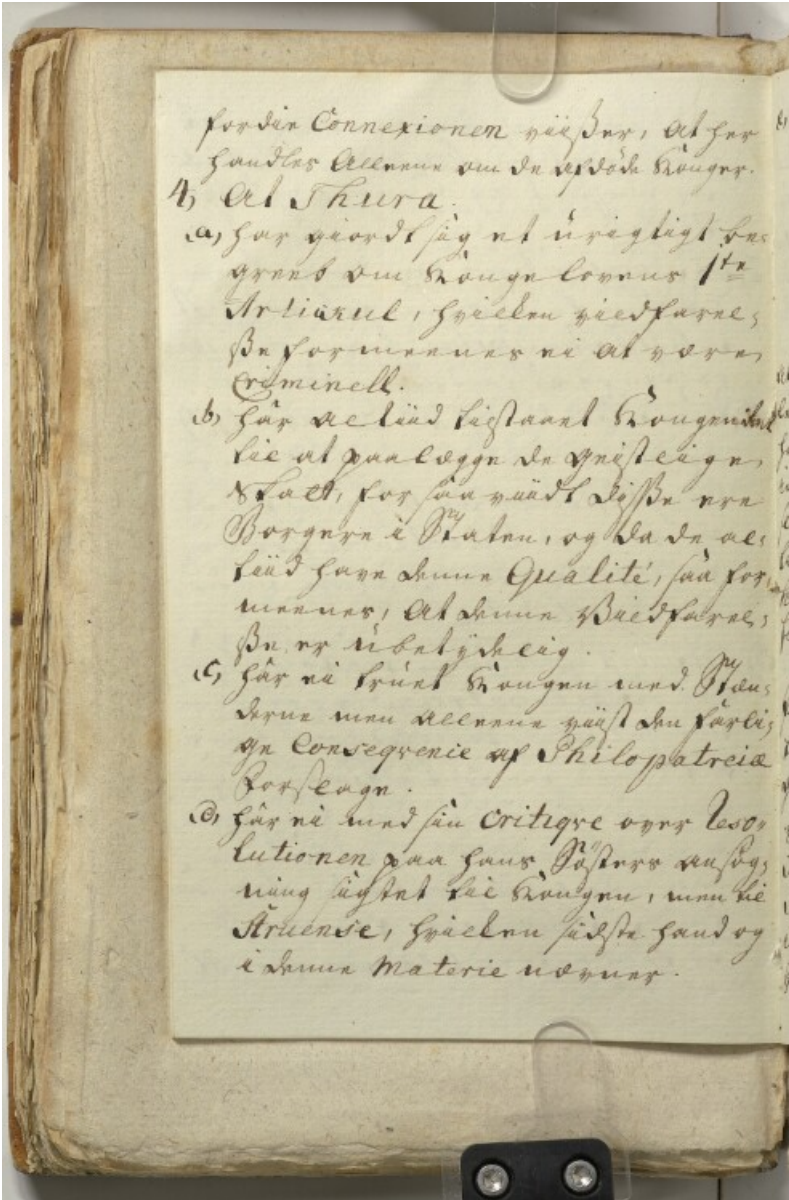 fordie Connexionen viißer, at her
handles alleene om de afdøde Konger.
4) At Thura.
a, har giordt sig et urigtigt be-
greeb om Kongelovens 1ste
Articul, hvilken vildfarel-
ße formeenes ei at være
Criminell.
b, har altiid tilstaaet Kongen
til at paalægge de geistlige
Skatt, for saa viidt diße ere
Borgere i Staten, og da de al-
tiid have denne Qualité, saa for-
meenes, at denne Vildfarel-
ße er ubetydelig.
c, har ei truet Kongen med Stæn-
derne men alleene viist den farli-
ge Conseqvenie af Philopatreiæ
Forslage.
d, har ei med sin Critiqve over Reso-
lutionen paa hans Søsters ansøg-
ning sigtet til Kongen, men til
Struense, hvilken sidste hand og
i denne Materie nævner.